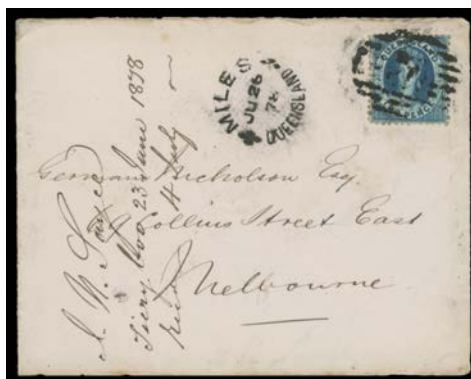 MILES
JU 26
78
QUEENSLAND
QUEENSLAND
PENCE
Germain Nicholson Esq.
Collins Street East
Melbourne
23 June 1878
4 July